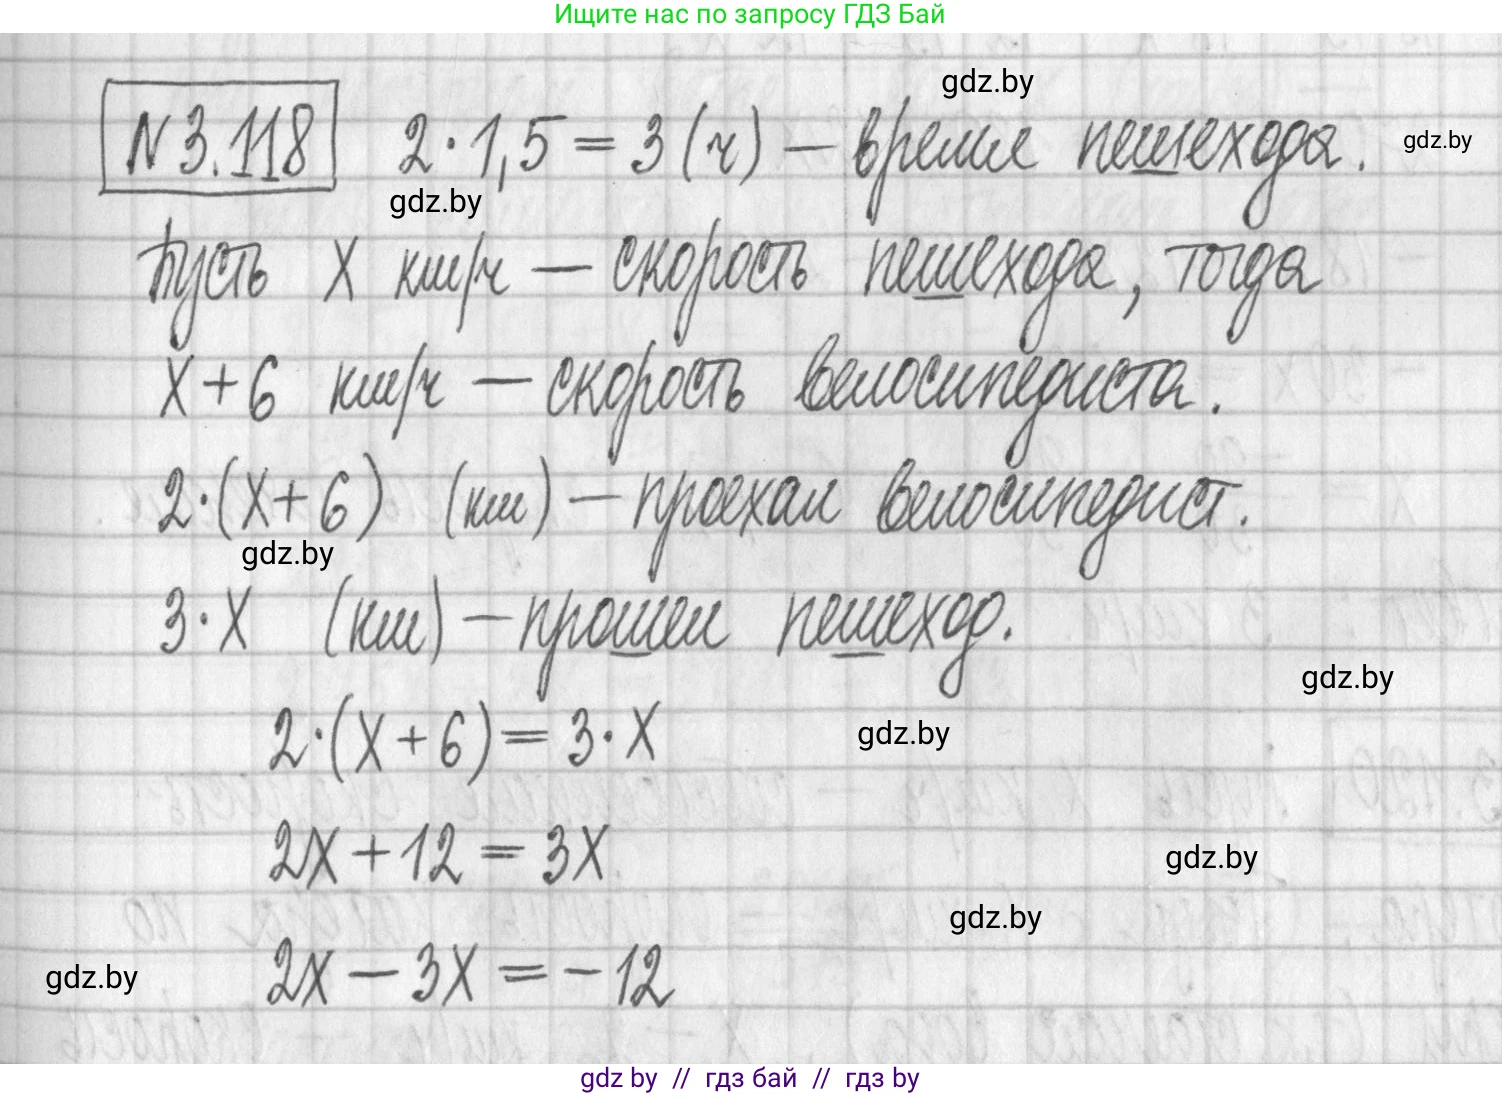 Ищите нас по запросу ГДЗ Бай
gdz.by
№3.118 2·1,5=3(ч) – время пешехода.
gdz.by
gdz.by
Пусть х км/ч – скорость пешехода, тогда
х+6 км/ч – скорость велосипедиста.
2·(х+6) (км) – проехал велосипедист.
gdz.by
3·х (км) – прошел пешеход.
gdz.by
2·(х+6)=3·х
gdz.by
2х+12=3х
gdz.by
gdz.by
2х–3х=–12
gdz.by
gdz by // гдз бай // гдз by